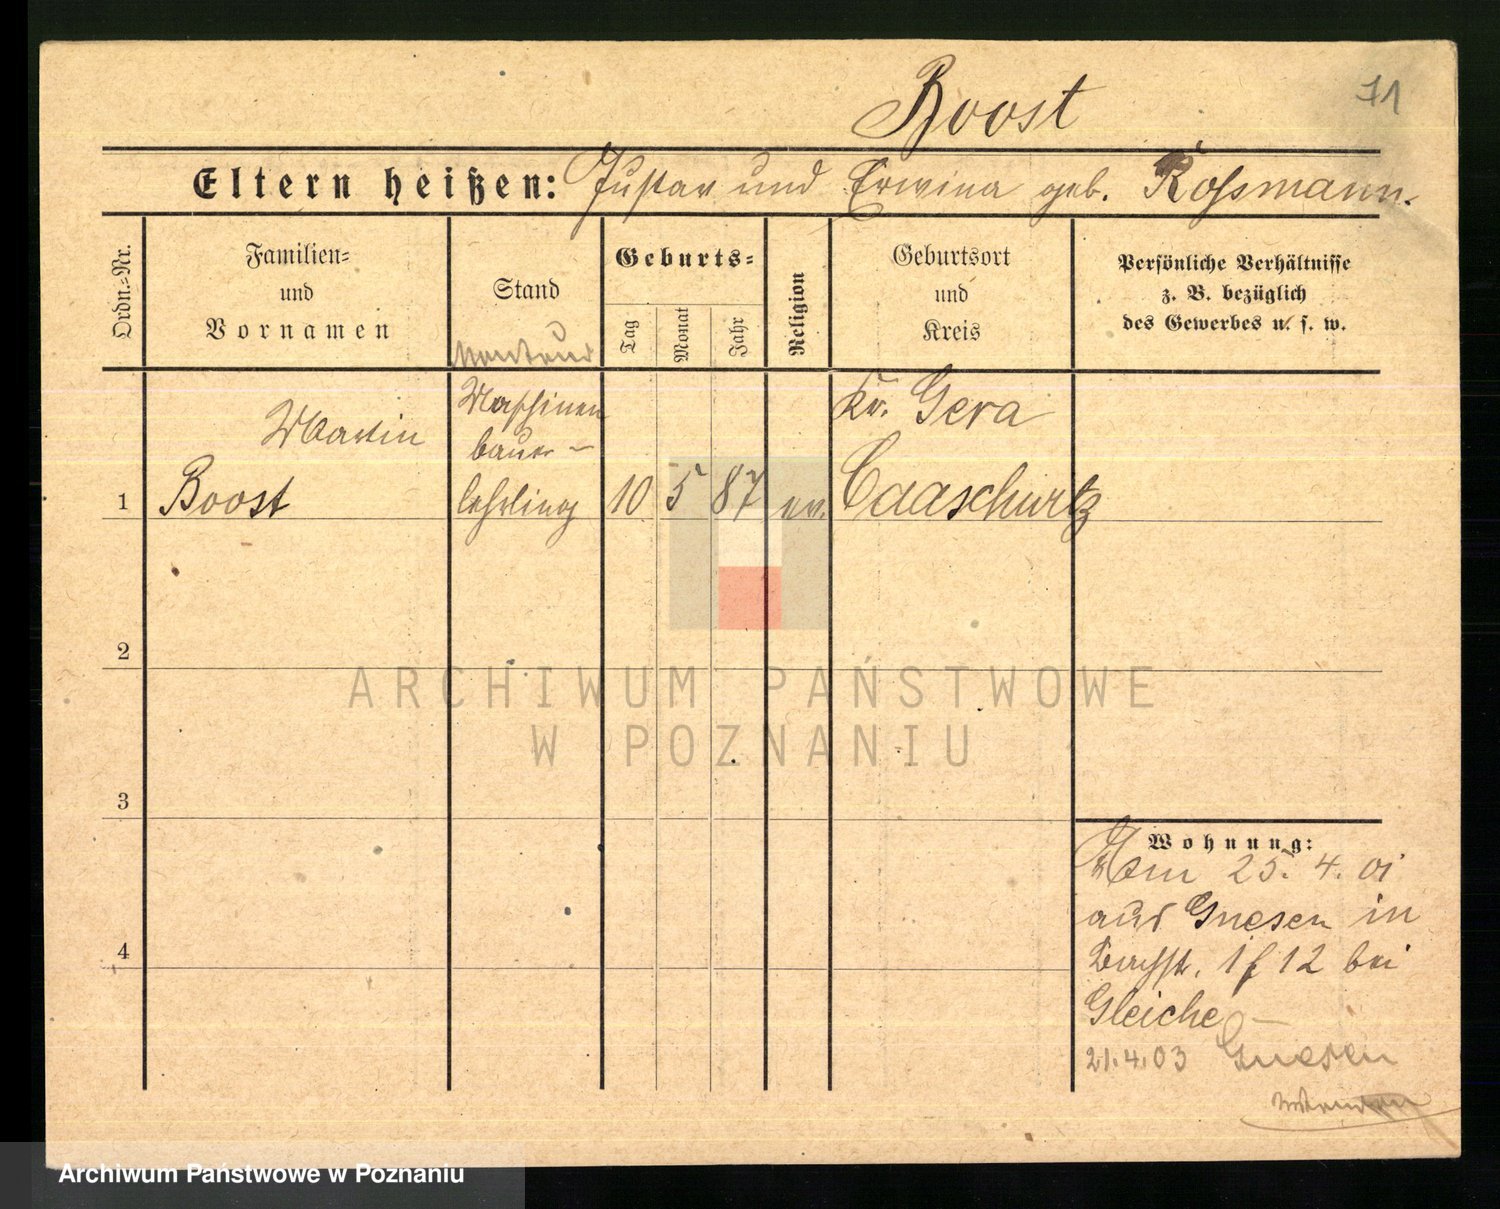 71
Boost
Eltern heißen: Gustav und Erwina geb. Rossmann.
Ordn.-Nr.
Familien-
und
Vornamen
Stand
Geburts-
Tag
Monat
Jahr
Religion
Geburtsort
und
Kreis
Persönliche Verhältnisse
z. B. bezüglich
des Gewerbes u. s. w.
Martin
Maschinen
bauer-
Kr. Gera
1 Boost lehrling 10 5 87 ev. Caaschwitz
2
3
4
Wohnung:
Am 25. 4. 01
aus Gnesen in
Bachstr. 12 bei
Gleiche
21.4.03 Gnesen
ARCHIWUM PAŃSTWOWE
W POZNANIU
Archiwum Państwowe w Poznaniu